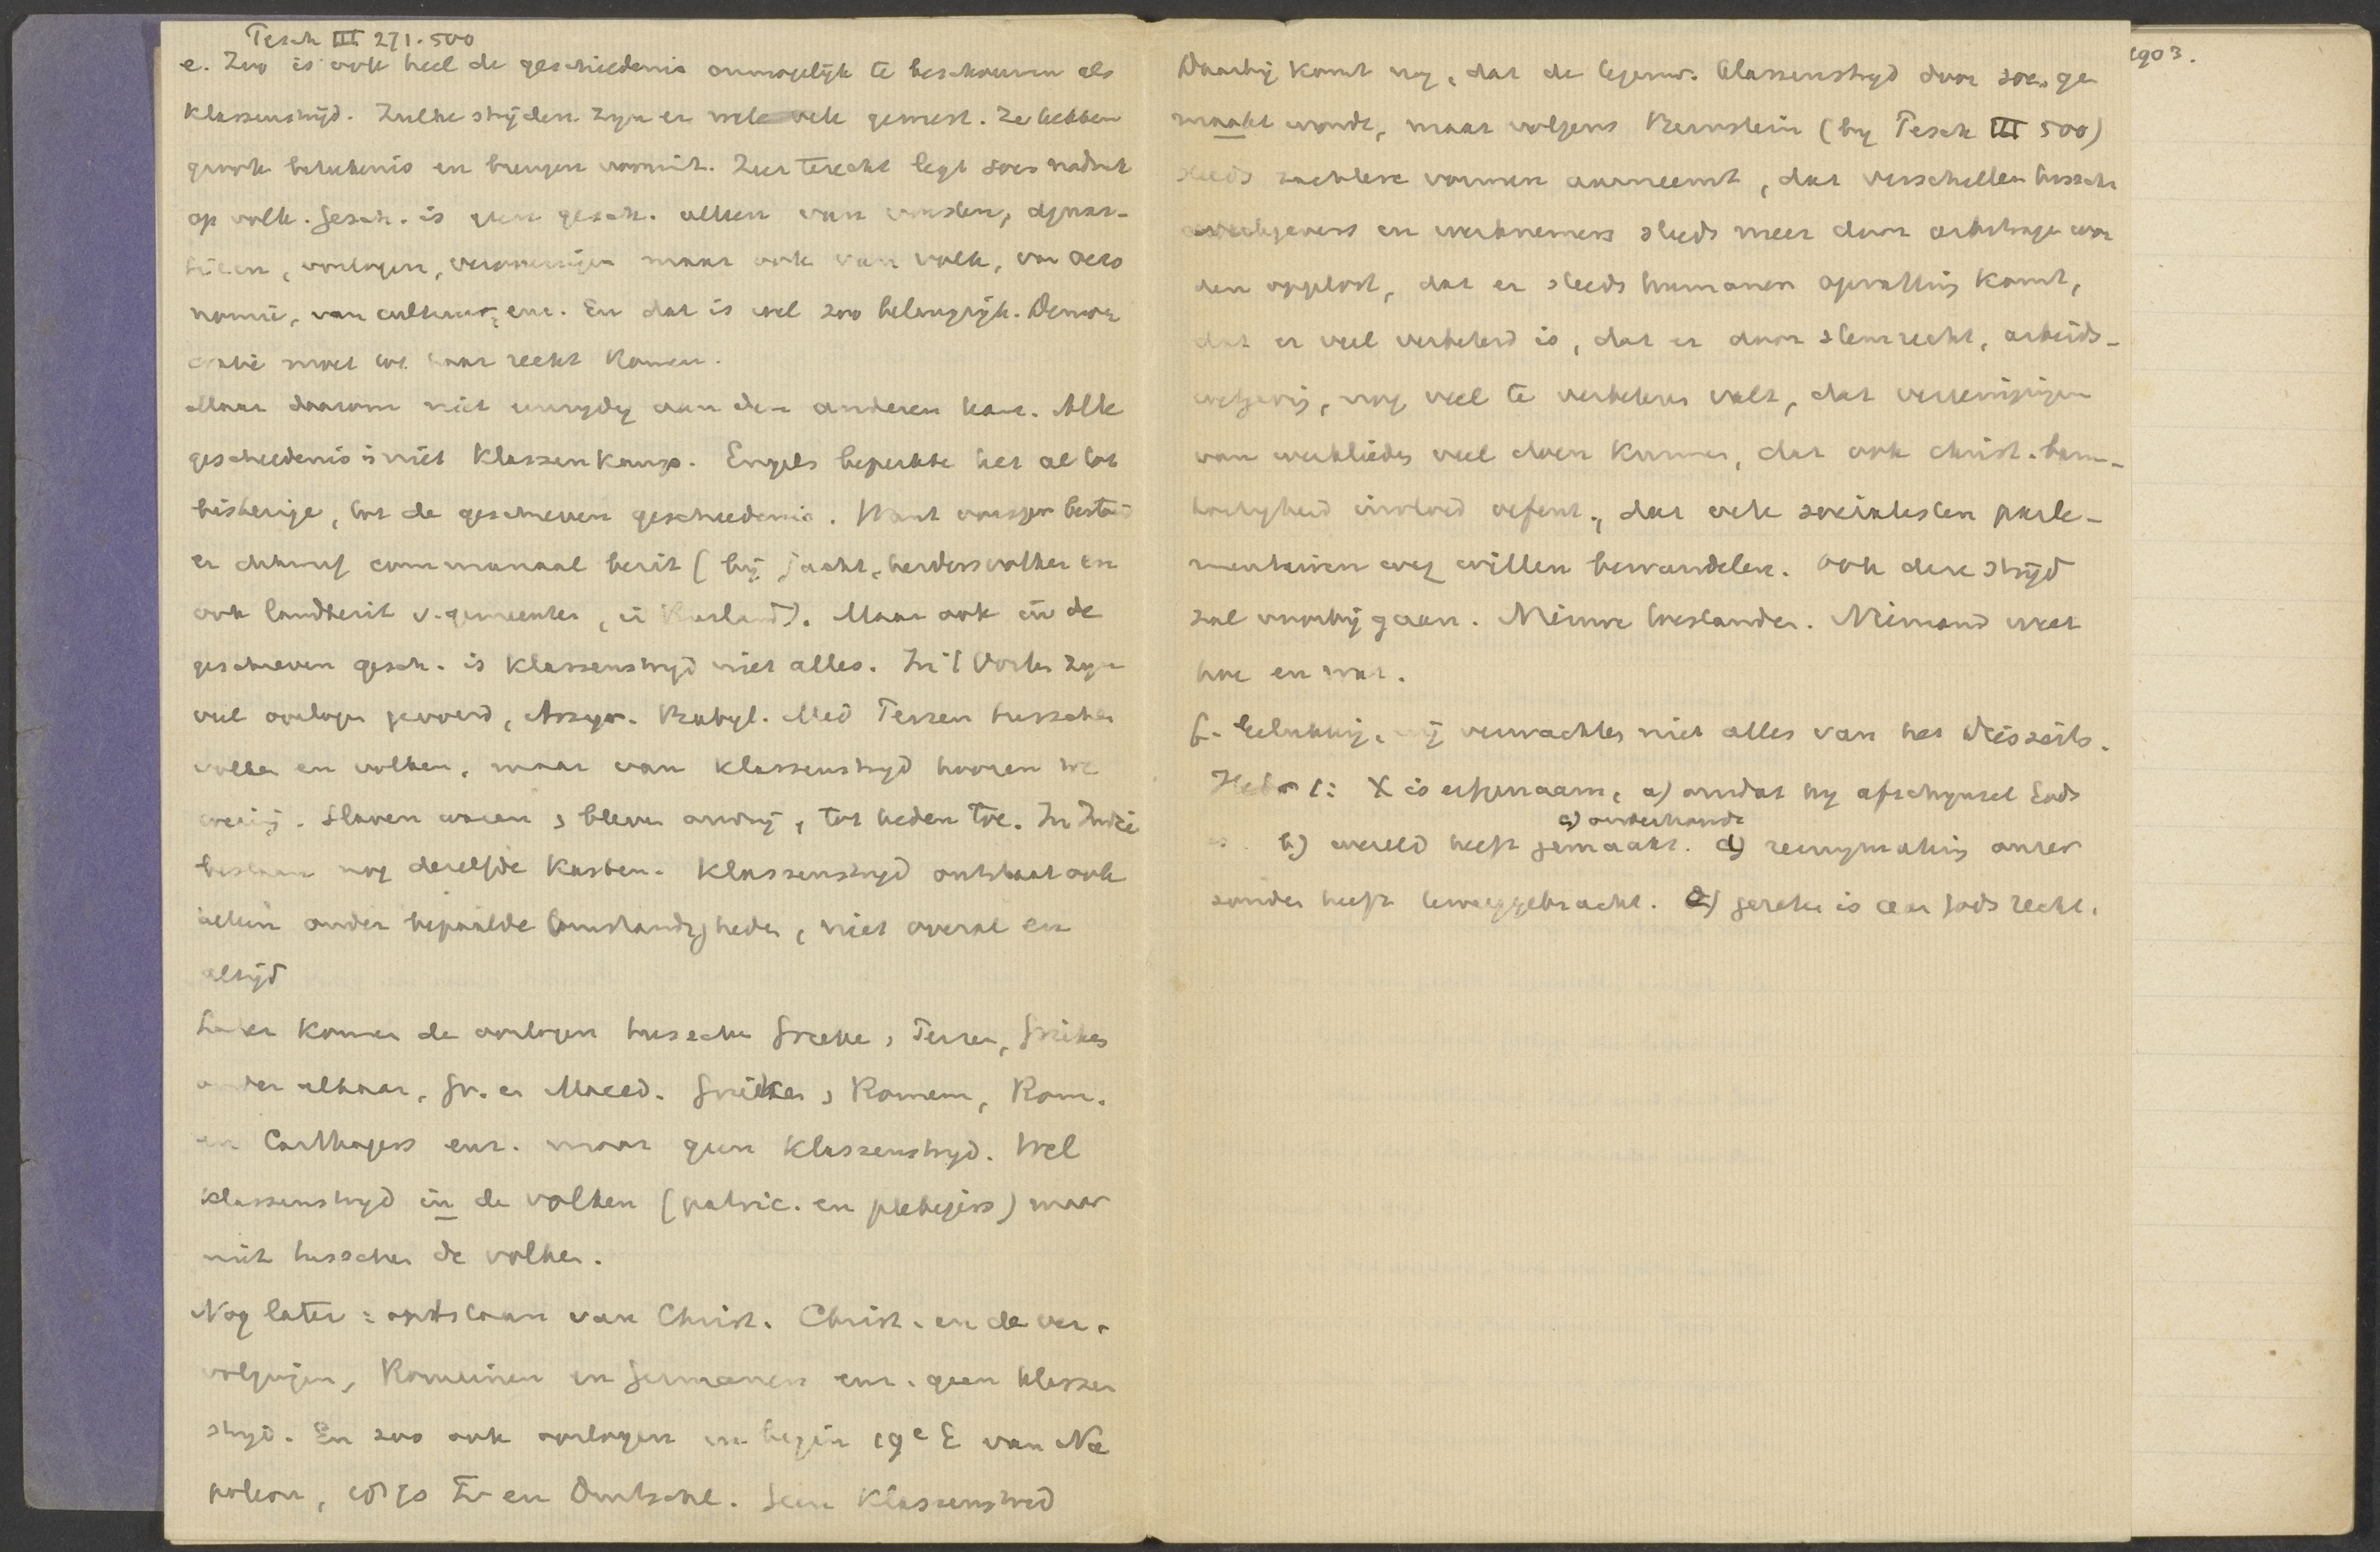 Pesch III 271. 500
e. Zoo is ook heel de geschiedenis onmogelijk te beschouwen als
Klassenstrijd. Zulke strijden zijn er vele geweest. Ze hebben
groote beteekenis en brengen vooruit. Zeer terecht legt soc. nadruk
op volk. Gesch. is geen gesch. alleen van vorsten, dynas-
tieen, oorlogen, maar ook van volk, van oeco
nomie, van cultuur, enz. En dat is wel zoo belangrijk. Democ
cratie moet tot haar recht komen.
Maar daarom niet eenzijdig aan den anderen kant. Alle
geschiedenis is niet Klassenkamp. Engels beperkte het al tot
bisherige, tot de geschreven geschiedenis. Want vroeger bestond
er communaal bezit (bij jacht, herdersvolken en
ook landbezit v. gemeenten, in Rusland). Maar ook in de
geschreven gesch. is Klassenstrijd niet alles. In 't Oosten zijn
veel oorlogen gevoerd, Assyr. Babyl. Med Perzen tusschen
volken en volken, maar van Klassenstrijd hooren we
weinig. Slaven waren, bleven onvrij, tot heden toe. In Indië
bestaan nog dezelfde Kasten. Klassenstrijd ontstaat ook
alleen onder bepaalde omstandigheden, niet overal en
altijd
Later komen de oorlogen tusschen Grieken, Perzen, Grieken
onder elkaar, Gr. en Maced. Grieken, Romein, Rom.
en Carthagers enz. maar geen Klassenstrijd. Wel
Klassenstrijd in de volken (patric. en plebejers) maar
niet tusschen de volken.
Nog later: ontstaan van Christ. Christ. en de ver-
volgingen, Romeinen en Germanen enz. geen klassen
strijd. En zoo ook oorlogen in begin 19e E van Na
poleon, 1870 Fr en Duitschl. Geen Klassenstrijd
Daarbij komt nog, dat de tegenw. klassenstrijd door soc. ge
maakt wordt, maar volgens Bernstein (bij Pesch III 500)
steeds zachtere vormen aanneemt, dat verschillen tusschen
werkgevers en werknemers steeds meer door arbitrage wor
den opgelost, dat er steeds humaner opvatting komt,
dat er veel verbeterd is, dat er door stemrecht, arbeids-
wetgeving, nog veel te verbeteren valt, dat vereenigingen
van werklieden veel doen kunnen, dat ook christ. barm-
hartigheid invloed oefent, dat vele socialisten parle-
mentairen weg willen bewandelen. Ook deze strijd
zal voorbij gaan. Nieuwe toestanden. Niemand weet
hoe en wat.
f. Gelukkig, wij verwachten niet alles van het diesseits.
Hebr 1: X is erfgenaam, a) omdat hij afschijnsel Gods
c) onderhoudt
is. b) wereld heeft gemaakt. d) reinigmaking onzer
zonden heeft teweeggebracht. e) gezeten is aan Gods recht.
1903.